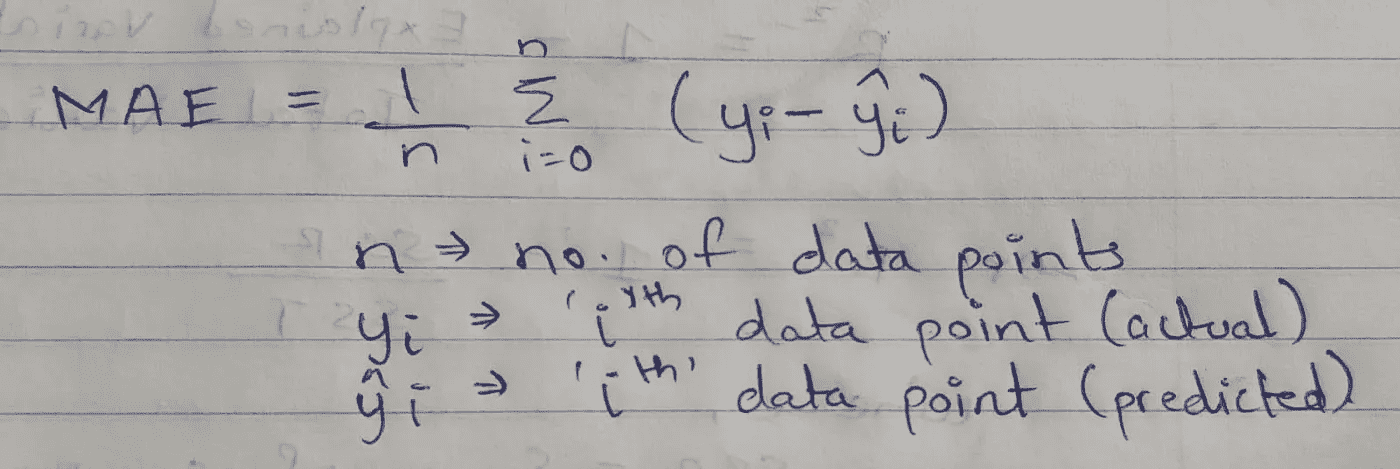 MAE = 1/n Σ_{i=0}^{n} (yi - ŷi)
n ⇒ no. of data points
yi ⇒ 'i'th data point (actual)
ŷi ⇒ 'ith' data point (predicted)